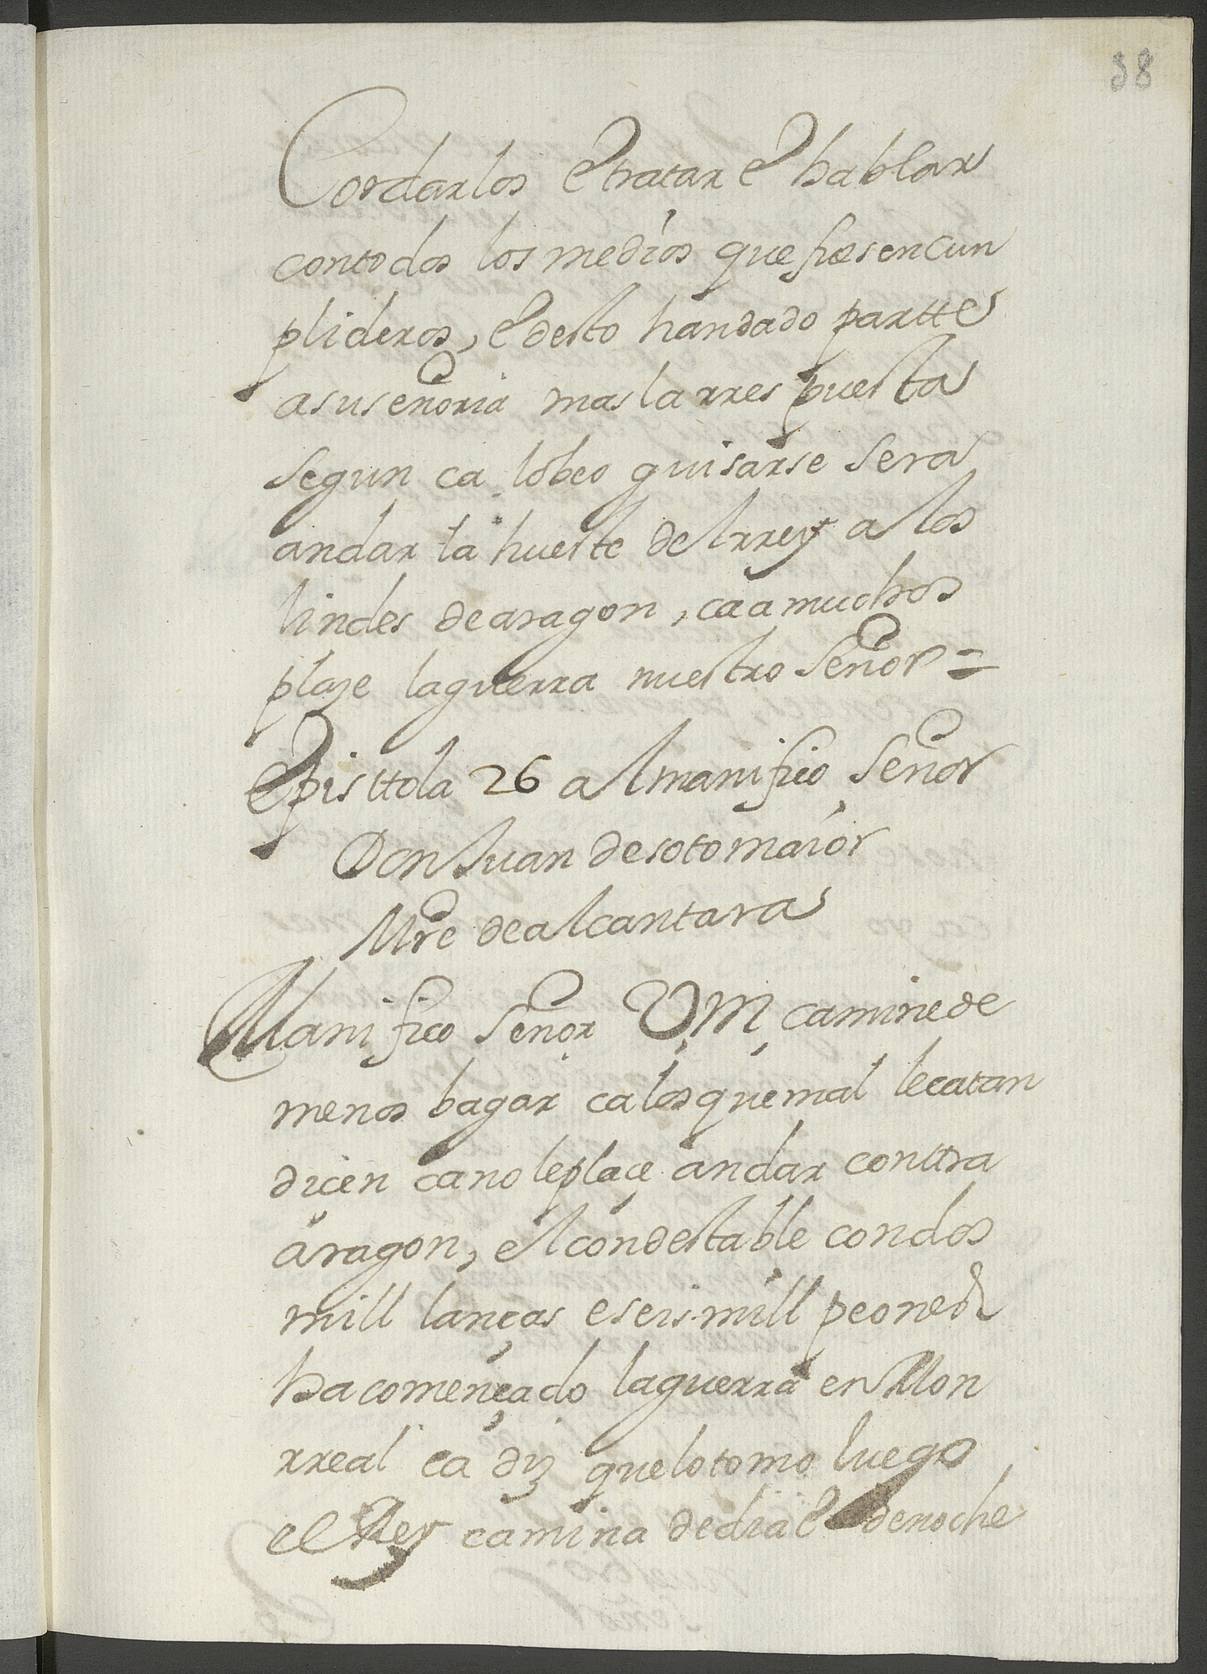 38
Cordarlos e tratar e hablar
con todos los medios que fiesen cun
plideros, e desto han dado partte
a su señoria mas la rrespuesta
segun ca lo beo guisarse sera
andar la hueste del rrey a los
lindes de aragon, ca a muchos
plaze la guerra nuestro Señor =
Episttola 26 al manifico Señor
Don Juan de sotomaior
Mre de alcantara
Manifico Señor VM camine de
menos bagar ca los que mal le catan
dicen ca no le place andar conttra
aragon, el condestable con dos
mill lanças e seis mill peones
ha començado la guerra en Mon
rreal ca diz que lo tomo luego
el Rey camina de dia e de noche